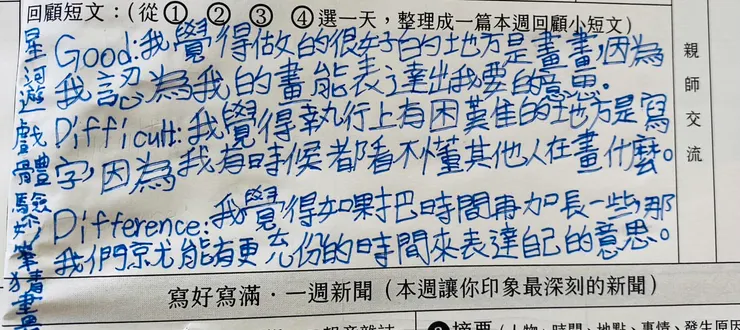 回顧短文：(從 ① ② ③ ④ 選一天，整理成一篇本週回顧小短文)
星河遊戲體驗 妙筆猜畫
Good:我覺得做的很好的地方是畫畫,因為
我認為我的畫能表達出我要的意思.
Difficult:我覺得執行上有困難的地方是寫
字,因為我有時候都看不懂其他人在畫什麼。
Difference:我覺得如果把時間再加長一些那
我們就能有更充份的時間來表達自己的意思。
親師交流
寫好寫滿．一週新聞（本週讓你印象最深刻的新聞）
摘要（人物、時間、地點、事情、發生原因